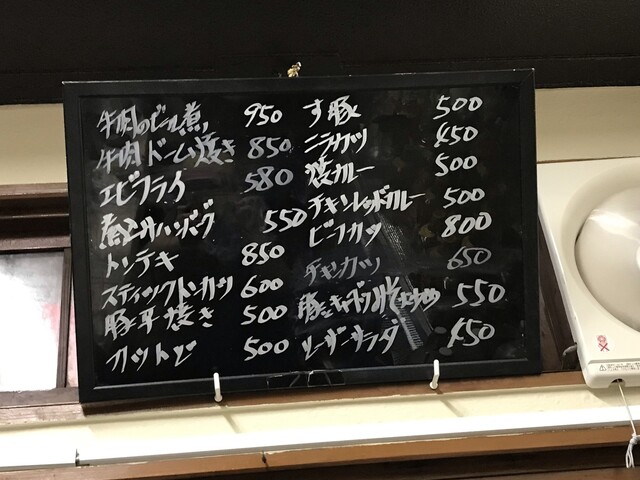 牛肉のビール煮 950
牛肉ドーム焼き 850
エビフライ 580
煮込みハンバーグ 550
トンテキ 850
スティックトンカツ 600
豚平焼き 500
500
す豚 500
ニラカツ 450
焼カレー 500
チキンレッドカレー 500
ビーフカツ 800
チキンカツ 650
豚とキャベツの 550
シーザーサラダ 450